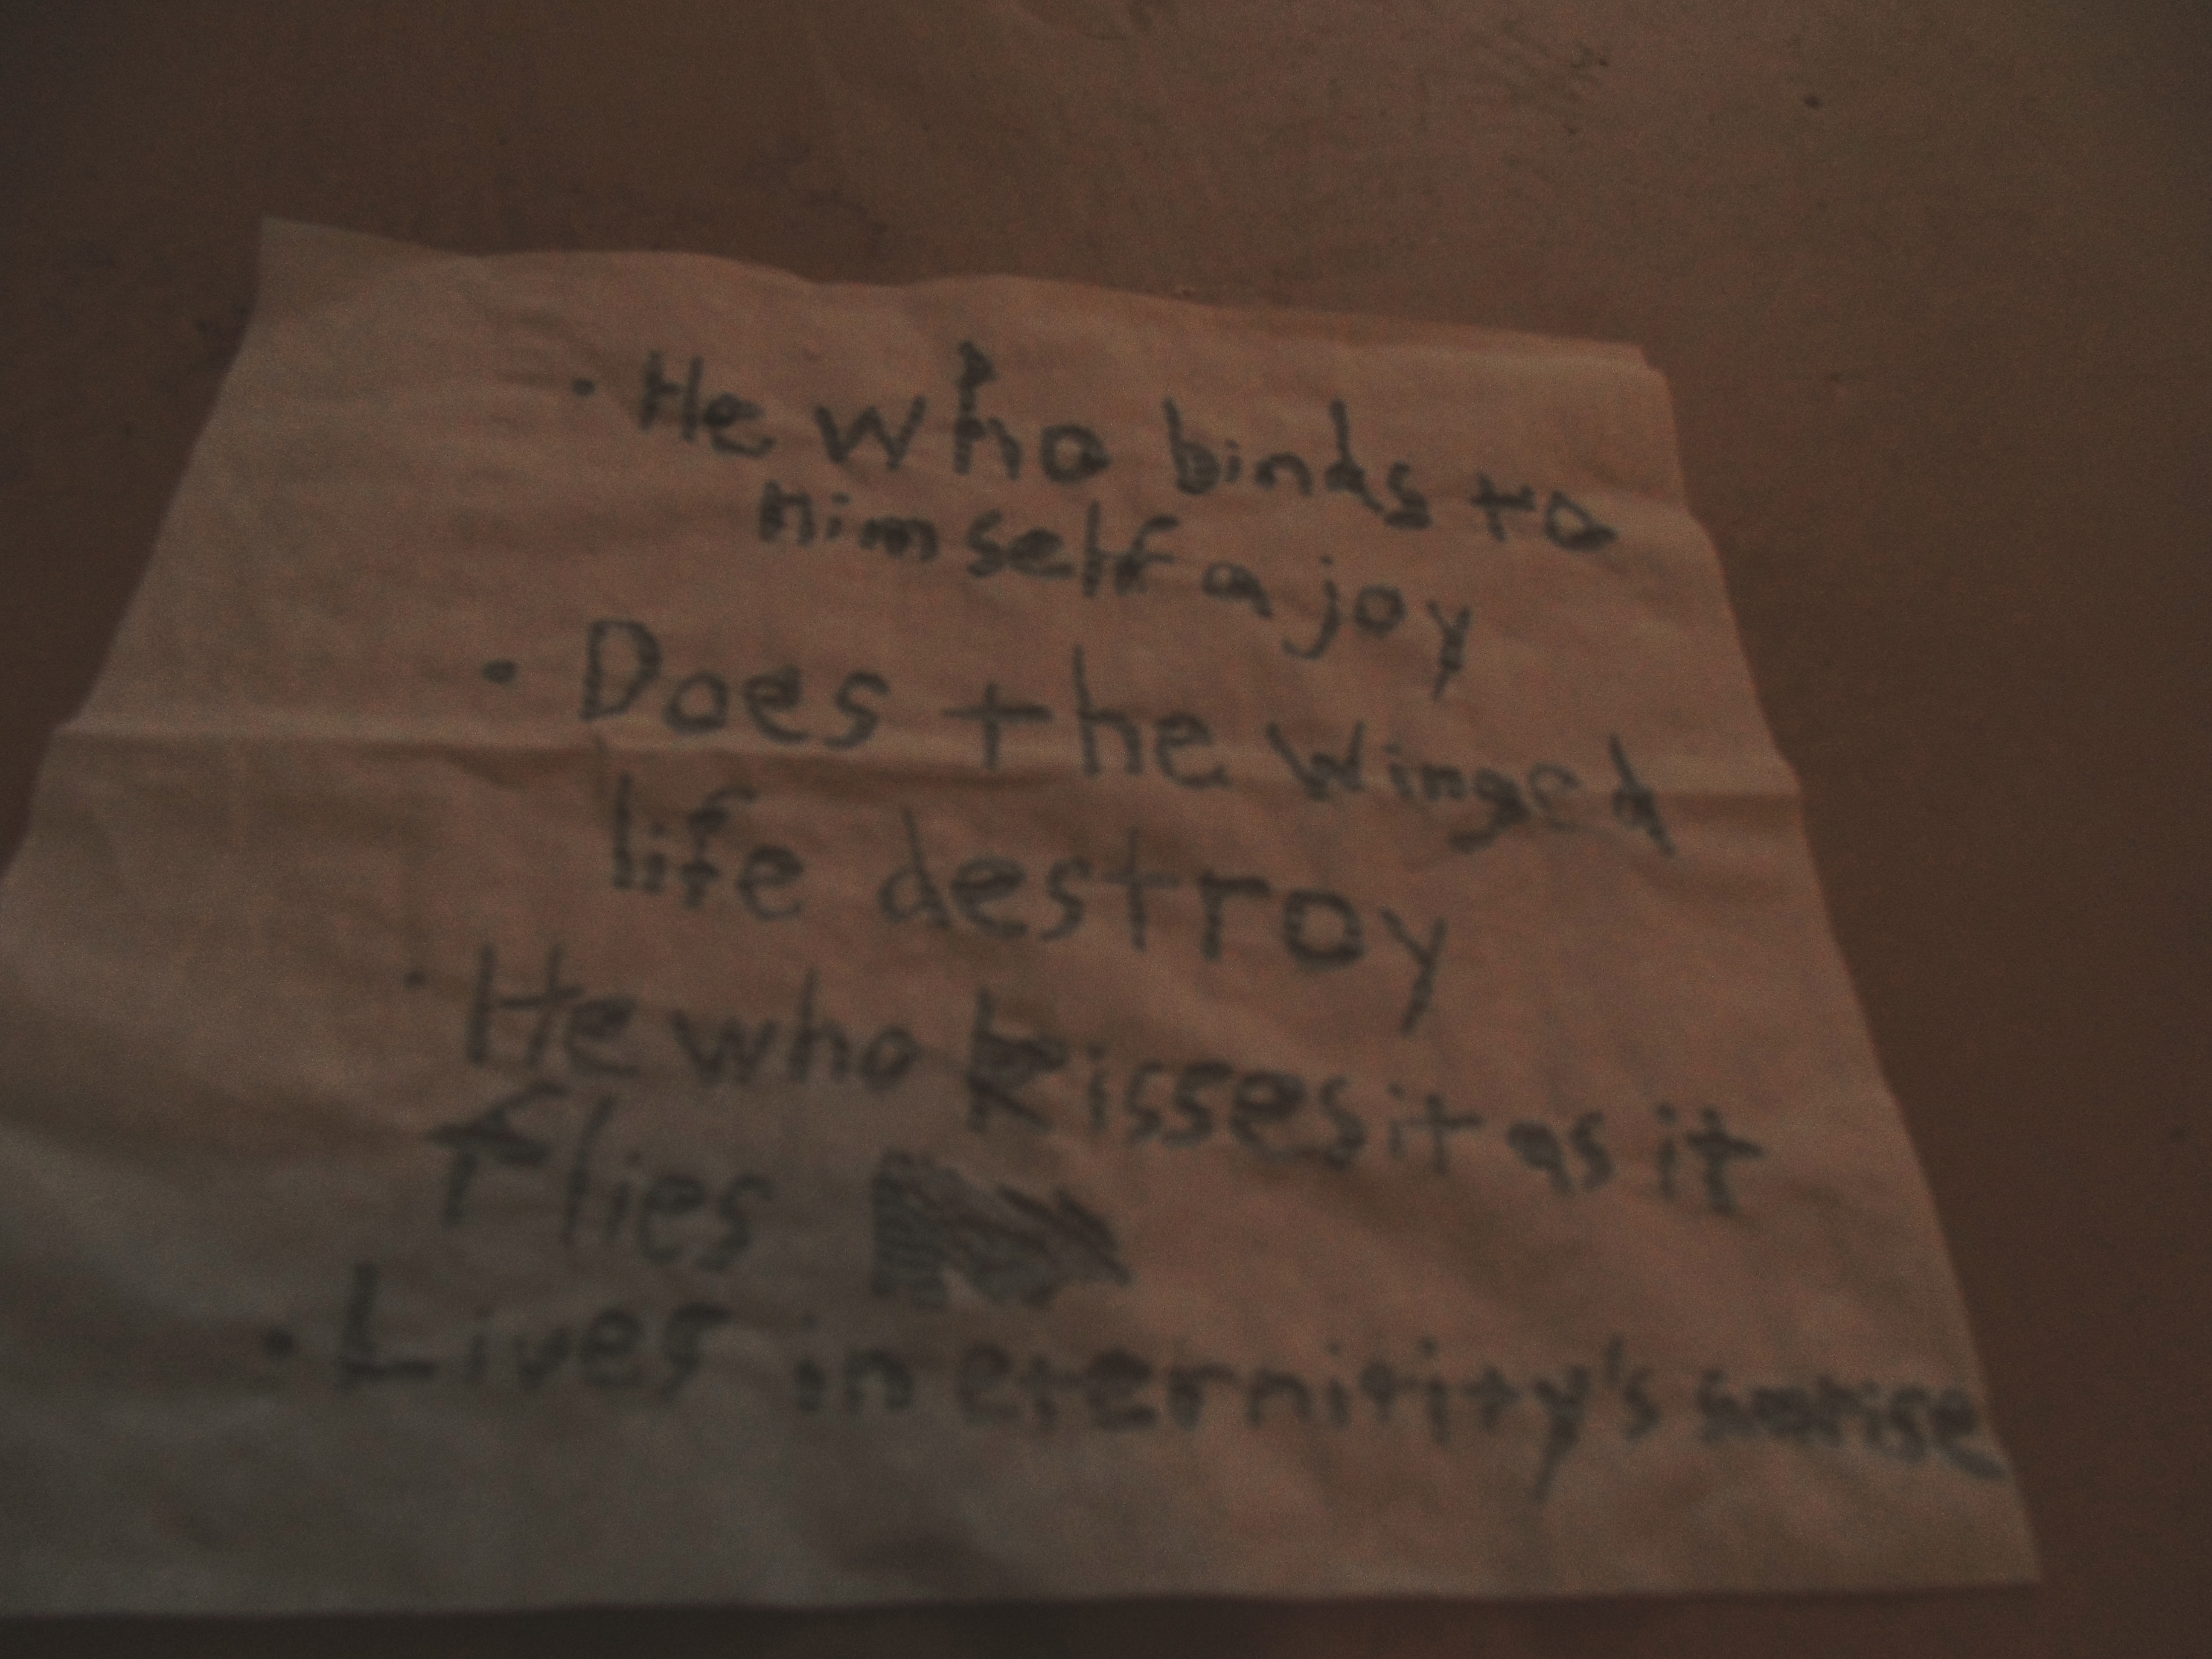 · He who binds to
himself a joy
· Does the winged
life destroy
· He who kisses it as it
flies
· Lives in eternitity's sunrise